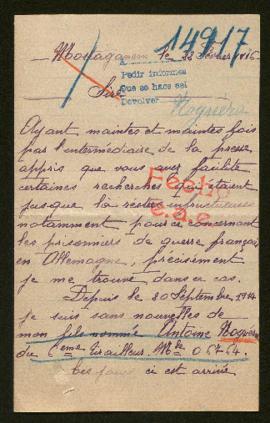 149/7
Mostaganem le 22 Février 1916
A
Pedir informes
Que se hace así
Devolver
Noguèra
Sire
Ayant maintes et maintes fois
par l'intermédiaire de la presse
appris que vous avez facilité
certaines recherches qui étaient
jusque là restées infructueuses
notamment pour ce concernant
les prisonniers de guerre français
en Allemagne, précisément
je me trouve dans ce cas.
Depuis le 20 Septembre 1914
je suis sans nouvelles de
mon fils nommé Antoine Noguèra
du 6ème tirailleurs. Mle 06754.
ci est arrivé